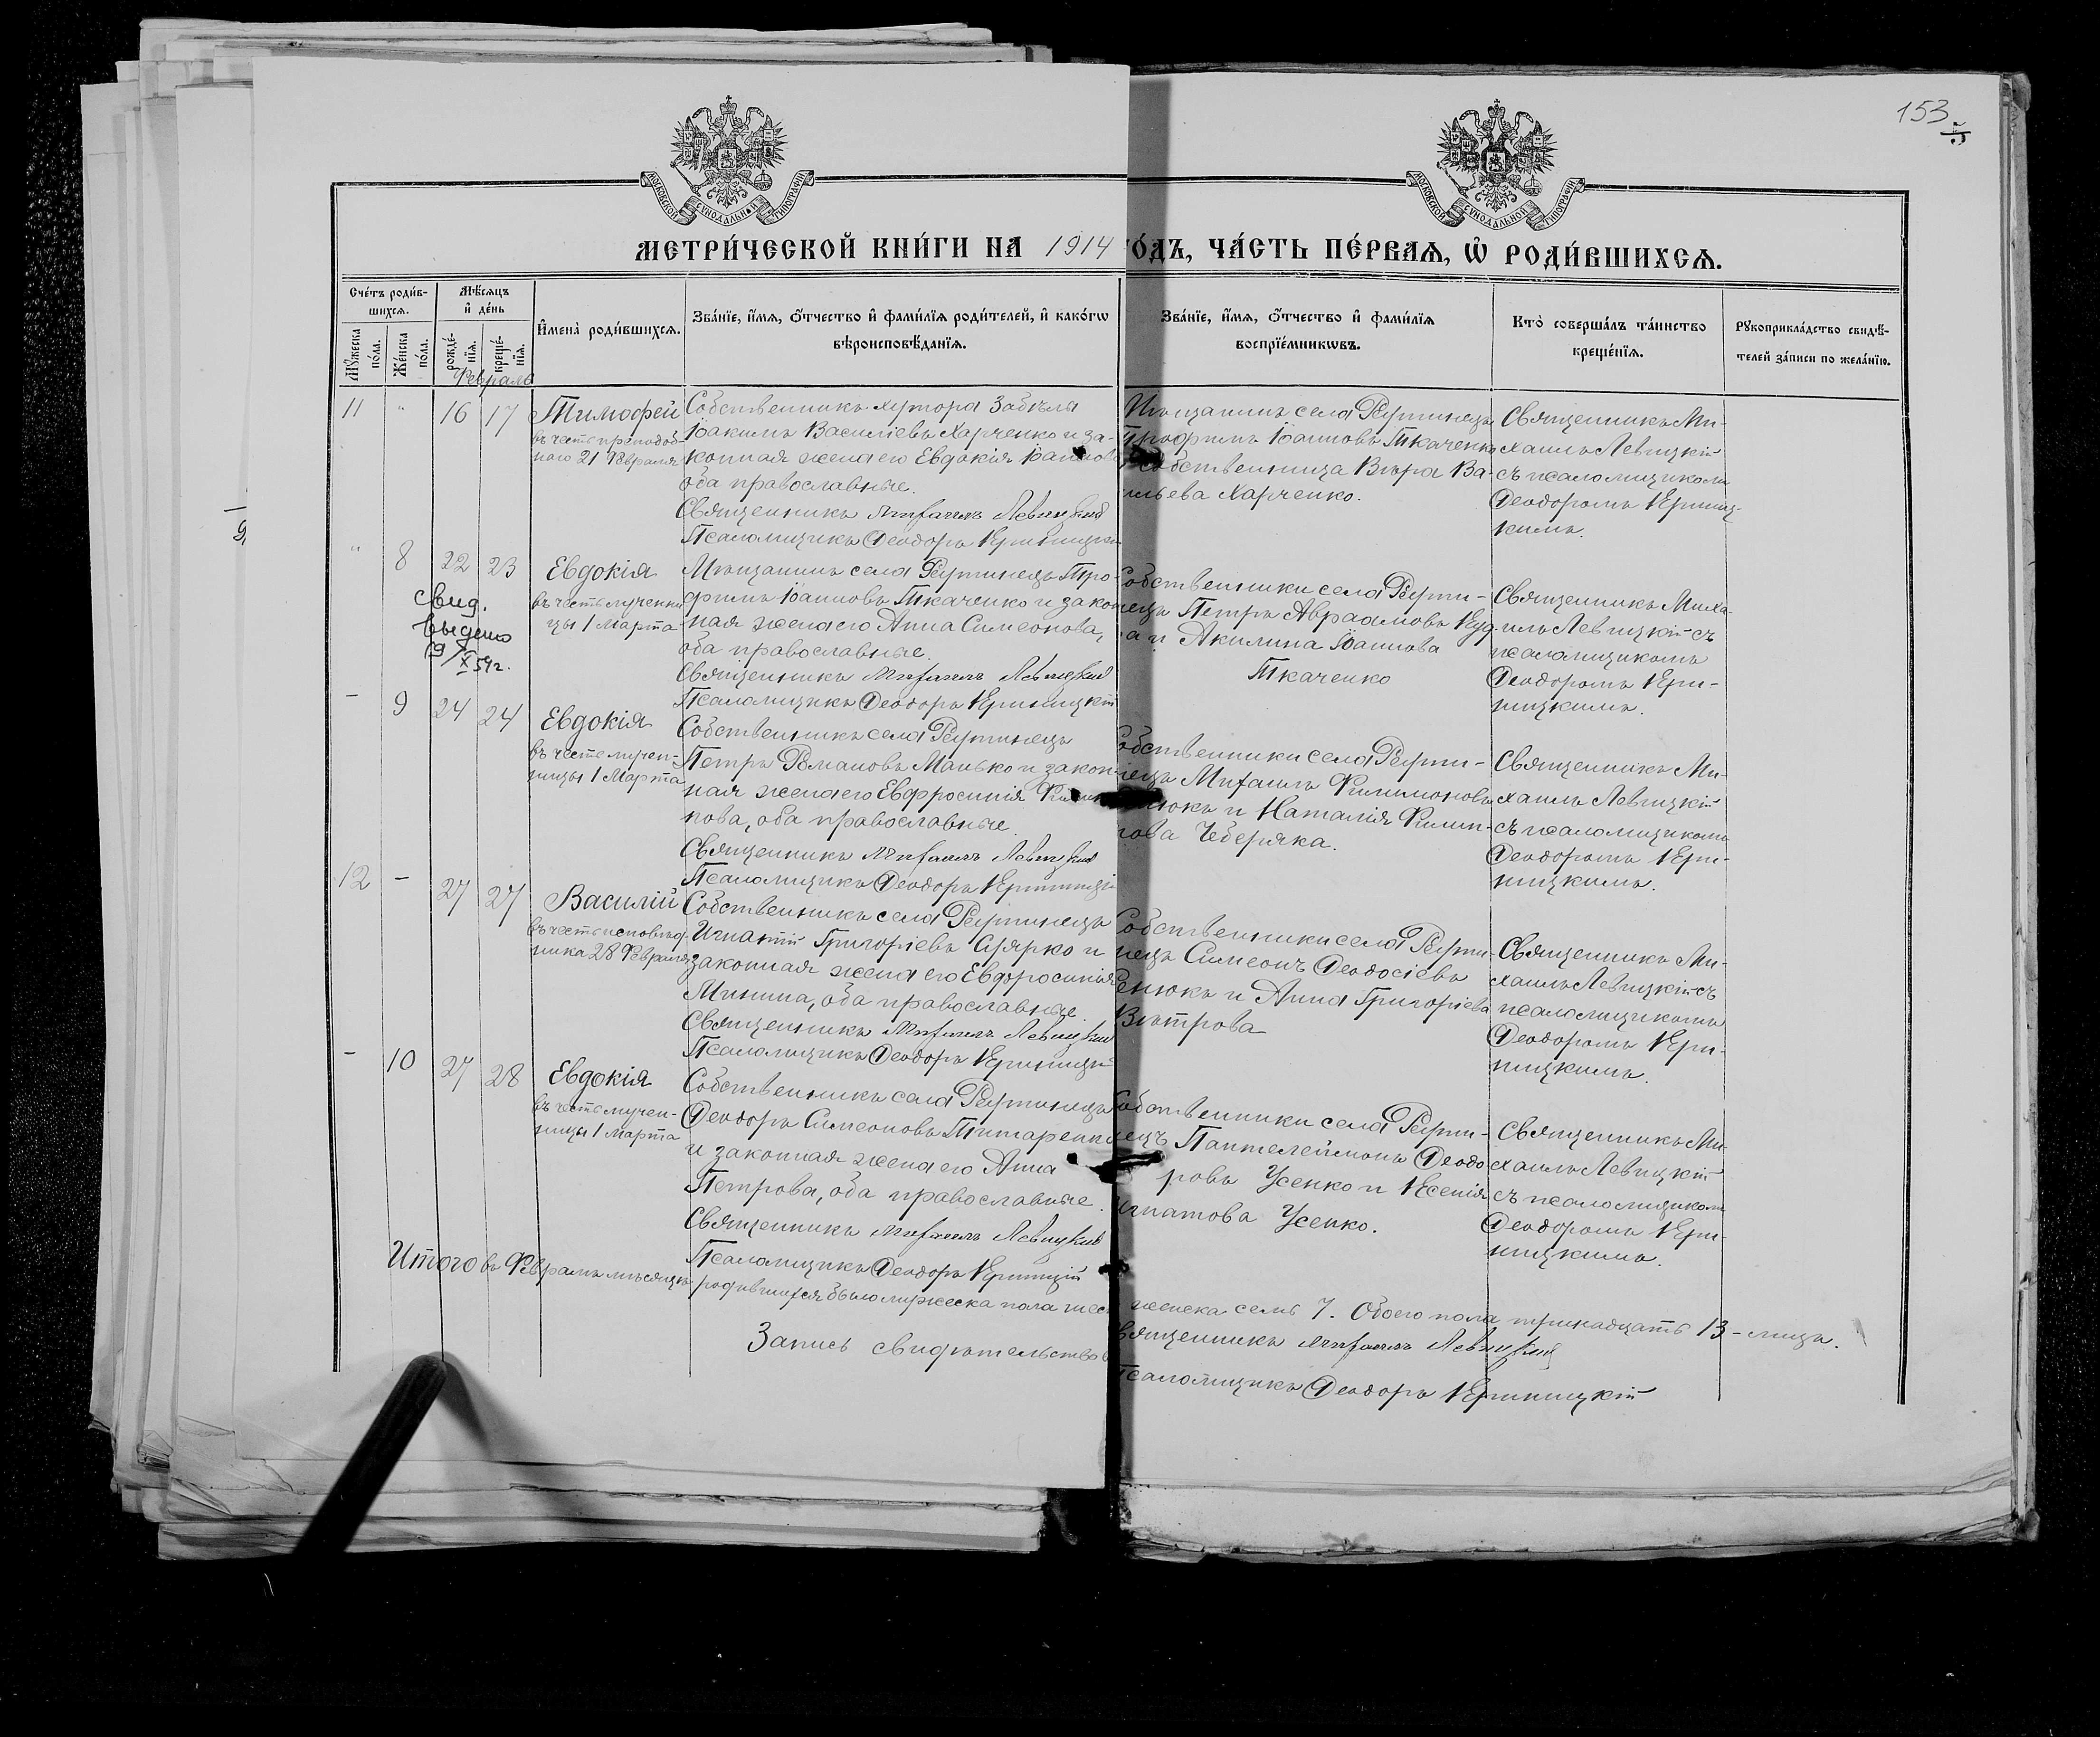 153
МОСКОВСКОЙ СѴНОДАЛЬНОЙ ТИПОГРАФІИ
МОСКОВСКОЙ СѴНОДАЛЬНОЙ ТИПОГРАФІИ
МЕТРИ́ЧЕСКОЙ КНИ́ГИ НА 1914 ГО́ДЪ, ЧА́СТЬ ПЕ́РВАѦ, Ѡ РОДИ́ВШИХСѦ.
Сче́тъ роди́в-
шихсѧ.
Мꙋжеска по́ла.
Же́нска по́ла.
Мѣ́сѧцъ
и҆ де́нь
рожде́-
нїѧ.
креще́-
нїѧ.
И҆мена̀ роди́вшихсѧ.
Зва́нїе, и҆́мѧ, ѻ҆́тчество и҆ фами́лїѧ роди́телей, и҆ како́гѡ
вѣроисповѣ́данїѧ.
Зва́нїе, и҆́мѧ, ѻ҆́тчество и҆ фами́лїѧ
воспрїе́мникѡвъ.
Кто̀ соверша́лъ та́инство
креще́нїѧ.
Рꙋкоприкла́дство свидѣ́-
телей за́писи по жела́нїю.
Февраль
11 " 16 17 Тимофей
въ честь преподоб-
наго 21 Февраля
Собственникъ хутора Забѣлы
Іоакимъ Василіевъ Харченко и за-
конная жена его Евдокія Іоаннова
оба православные.
Священникъ Михаилъ Левицкий
Псаломщикъ Ѳеодоръ Криницкій
Мѣщанинъ села Реутинецъ
Трофимъ Іоанновъ Ткаченко
и собственница Вѣра Ва-
сильева Харченко.
Священникъ Ми-
хаилъ Левицкій
съ псаломщикомъ
Ѳеодоромъ Криниц-
кимъ.
" 8 22 23 Евдокія
въ честь мучени
цы 1 Марта
свид.
выдано
19/X 54г.
Мѣщанинъ села Реутинецъ Тро-
фимъ Іоанновъ Ткаченко и закон
ная жена его Анна Симеонова,
оба православные.
Священникъ Михаилъ Левицкий
Псаломщикъ Ѳеодоръ Криницкій
Собственники села Реути-
нецъ Петръ Авраамовъ
и Акилина Іоаннова
Ткаченко
Священникъ Миха-
илъ Левицкій съ
псаломщикомъ
Ѳеодоромъ Кри-
ницкимъ.
- 9 24 24 Евдокія
въ честь мучен-
ницы 1 Марта
Собственникъ села Реутинецъ
Петръ Романовъ Манько и закон-
ная жена его Евфросинія
нова, оба православные.
Священникъ Михаилъ Левицкий
Псаломщикъ Ѳеодоръ Криницкій
Собственники села Реути-
нецъ Михаилъ Филимоновъ
и Наталія Филип-
пова Чеберяка.
Священникъ Ми-
хаилъ Левицкій
съ псаломщикомъ
Ѳеодоромъ Кри-
ницкимъ.
12 - 27 27 Василій
въ честь исповѣд-
ника 28 Февраля
Собственникъ села Реутинецъ
Игнатій Григоріевъ и
законная жена его Евфросинія
Минина, оба православные.
Священникъ Михаилъ Левицкий
Псаломщикъ Ѳеодоръ Криницкій
Собственники села Реути-
нецъ Симеонъ Ѳеодосіевъ
и Анна Григоріева
Вѣтрова
Священникъ Ми-
хаилъ Левицкій съ
псаломщикомъ
Ѳеодоромъ Кри-
ницкимъ.
- 10 27 28 Евдокія
въ честь мучен-
ницы 1 Марта
Собственникъ села Реутинецъ
Ѳеодоръ Симеоновъ Титаренко
и законная жена его Анна
Петрова, оба православные.
Священникъ Михаилъ Левицкий
Псаломщикъ Ѳеодоръ Криницкій
Собственники села Реути-
нецъ Пантелеймонъ Ѳеодо
ровъ Усенко и Ксенія
Игнатова Усенко.
Священникъ Ми-
хаилъ Левицкій
съ псаломщикомъ
Ѳеодоромъ Кри-
ницкимъ.
Итого въ Февралѣ мѣсяцѣ родившихся было мужеска пола шес женска семь 7. Обоего пола тринадцать 13 - лицъ.
Запись свидѣтельство Священникъ Михаилъ Левицкий
Псаломщикъ Ѳеодоръ Криницкій